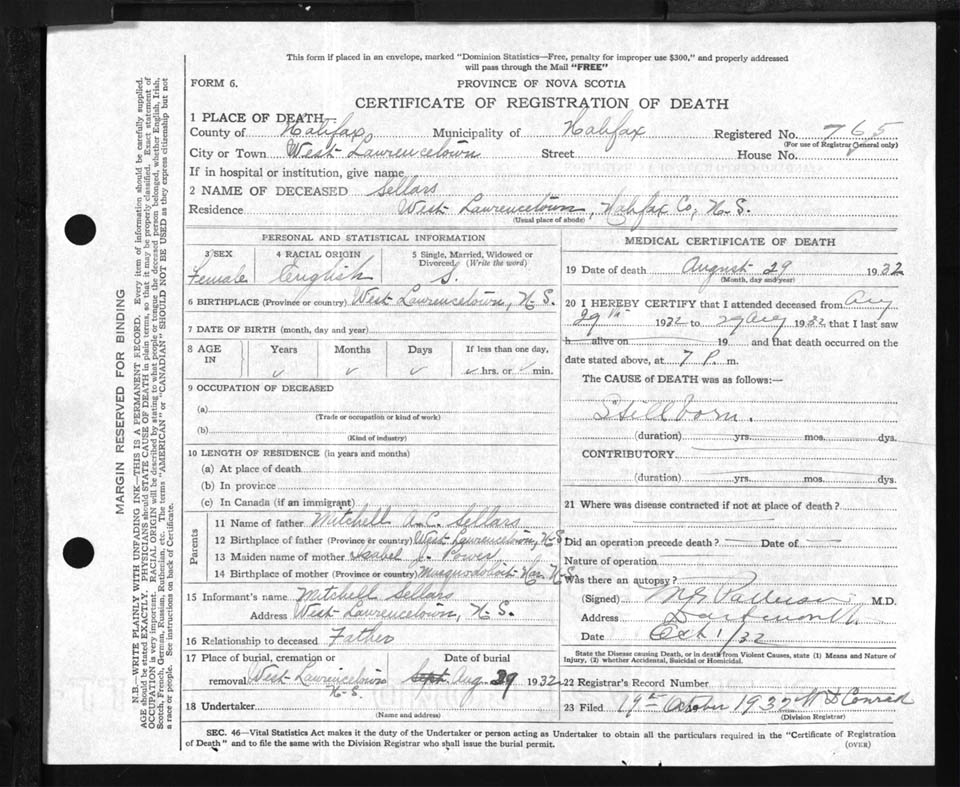 This form if placed in an envelope, marked "Dominion Statistics—Free, penalty for improper use $300," and properly addressed
will pass through the Mail "FREE"
FORM 6.
PROVINCE OF NOVA SCOTIA
CERTIFICATE OF REGISTRATION OF DEATH
1 PLACE OF DEATH
County of Halifax, Municipality of Halifax Registered No. 765
(For use of Registrar General only)
City or Town West Lawrencetown Street House No.
If in hospital or institution, give name
2 NAME OF DECEASED Sellars
Residence West Lawrencetown, Halifax Co, N.S.
(Usual place of abode)
PERSONAL AND STATISTICAL INFORMATION
3 SEX Female
4 RACIAL ORIGIN English
5 Single, Married, Widowed or Divorced. (Write the word) S.
6 BIRTHPLACE (Province or country) West Lawrencetown, N.S.
7 DATE OF BIRTH (month, day and year)
8 AGE IN Years Months Days If less than one day,
hrs. or min.
9 OCCUPATION OF DECEASED
(a)
(Trade or occupation or kind of work)
(b)
(Kind of industry)
10 LENGTH OF RESIDENCE (in years and months)
(a) At place of death
(b) In province
(c) In Canada (if an immigrant)
Parents
11 Name of father Mitchell A.C. Sellars
12 Birthplace of father (Province or country) West Lawrencetown, N.S.
13 Maiden name of mother Isabel J. Power
14 Birthplace of mother (Province or country) Musquodoboit Har. N.S.
15 Informant's name Mitchell Sellars
Address West Lawrencetown, N.S.
16 Relationship to deceased Father
17 Place of burial, cremation or removal West Lawrencetown N.S. Date of burial Sept. Aug. 29 1932
18 Undertaker
(Name and address)
MEDICAL CERTIFICATE OF DEATH
19 Date of death August 29 1932
(Month, day and year)
20 I HEREBY CERTIFY that I attended deceased from Aug
29th 1932 to 29 Aug 1932 that I last saw
h alive on 19 and that death occurred on the
date stated above, at 7 P. m.
The CAUSE OF DEATH was as follows:—
Stillborn.
(duration) yrs. mos. dys.
CONTRIBUTORY
(duration) yrs. mos. dys.
21 Where was disease contracted if not at place of death?
Did an operation precede death? Date of
Nature of operation
Was there an autopsy?
(Signed) M.D.
Address Dartmouth
Date Oct 1/32
State the Disease causing Death, or in death from Violent Causes, state (1) Means and Nature of
Injury, (2) whether Accidental, Suicidal or Homicidal.
22 Registrar's Record Number
23 Filed 19th October 1932 W D Conrad
(Division Registrar)
SEC. 46—Vital Statistics Act makes it the duty of the Undertaker or person acting as Undertaker to obtain all the particulars required in the "Certificate of Registration
of Death" and to file the same with the Division Registrar who shall issue the burial permit.
(OVER)
MARGIN RESERVED FOR BINDING
N.B.—WRITE PLAINLY WITH UNFADING INK—THIS IS A PERMANENT RECORD. Every item of information should be carefully supplied.
AGE should be stated EXACTLY. PHYSICIANS should STATE CAUSE OF DEATH in plain terms, so that it may be properly classified. Exact statement of
OCCUPATION is very important. RACIAL ORIGIN will be described by stating to what people or tongue the deceased person belonged, whether English, Irish,
Scotch, French, German, Russian, Ruthenian, etc. The terms "AMERICAN" or "CANADIAN" SHOULD NOT BE USED as they express citizenship but not
a race or people. See instructions on back of Certificate.